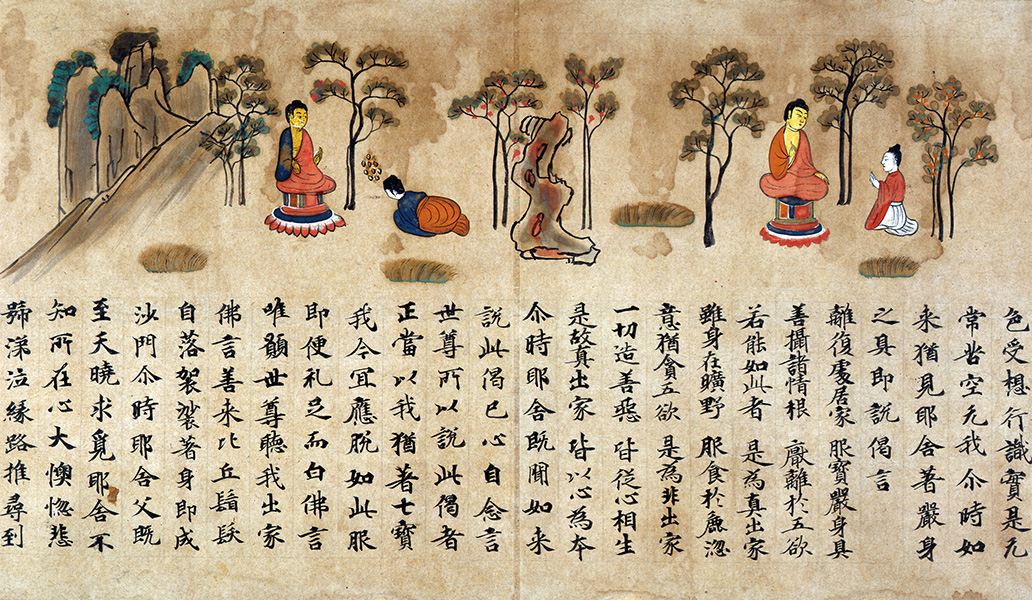 色受想行識實是无
常苦空无我尒時如
来猶見耶舍著嚴身
之具即說偈言
離復處居家 服寶嚴身具
善攝諸情根 厭離於五欲
若能如此者 是為真出家
雖身在曠野 服食於麁澁
意猶貪五欲 是為非出家
一切造善惡 皆従心相生
是故真出家 皆以心為本
尒時耶舍既聞如来
說此偈已心自念言
世尊所以說此偈者
正當以我猶著七寶
我今冝應脫如此服
即便礼足而白佛言
唯願世尊聽我出家
佛言善来比丘鬚髮
自落袈裟著身即成
沙門尒時耶舍父既
至天曉求覓耶舍不
知所在心大懊惱悲
號涕泣縁路推尋到